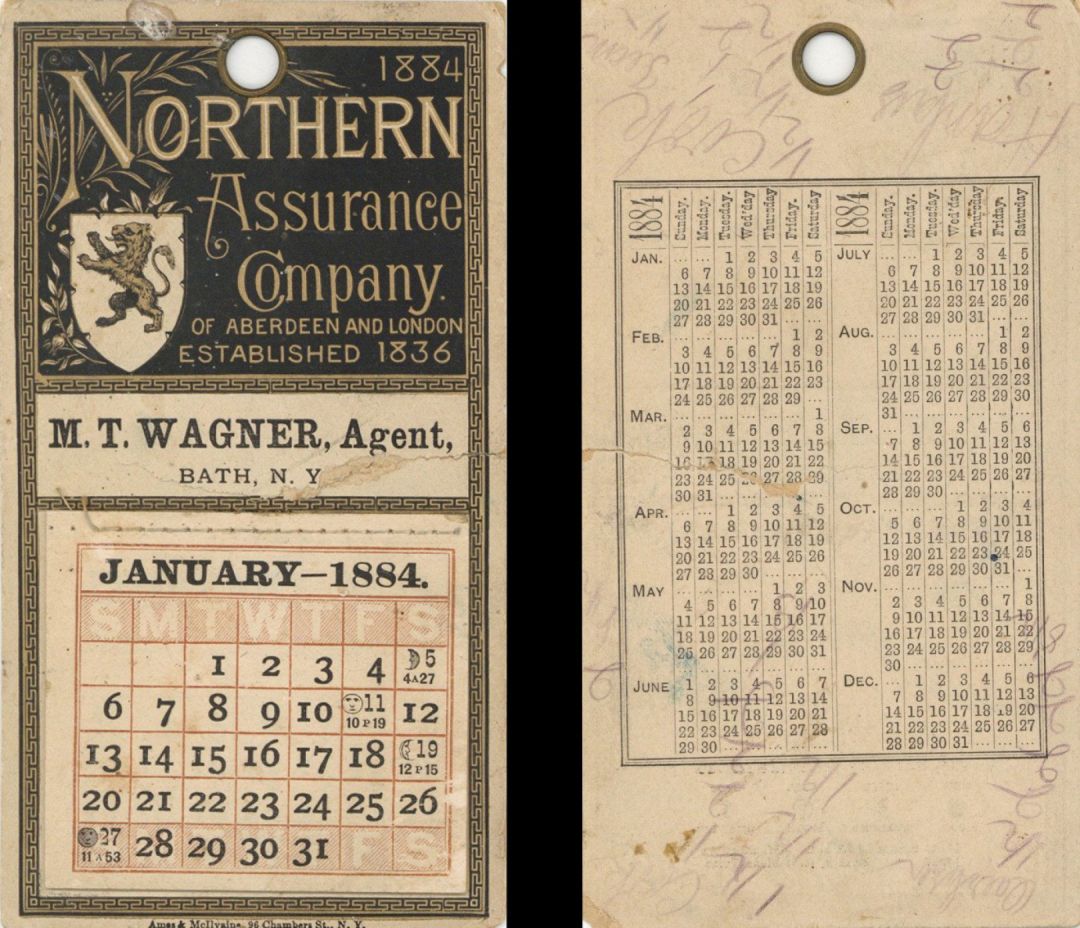 1884
NORTHERN
Assurance
Company.
OF ABERDEEN AND LONDON
ESTABLISHED 1836
M. T. WAGNER, Agent,
BATH, N. Y
JANUARY–1884.
S M T W T F S
1 2 3 4 5
4 A 27
6 7 8 9 10 11 12
10 P 19
13 14 15 16 17 18 19
12 P 15
20 21 22 23 24 25 26
27 28 29 30 31 F S
11 A 53
Ames & McIlvaine, 96 Chambers St., N. Y.
1884 Sunday. Monday. Tuesday. Wed'day Thursday Friday. Saturday
JAN. ... ... 1 2 3 4 5
6 7 8 9 10 11 12
13 14 15 16 17 18 19
20 21 22 23 24 25 26
27 28 29 30 31 ... ...
FEB. ... ... ... ... ... 1 2
3 4 5 6 7 8 9
10 11 12 13 14 15 16
17 18 19 20 21 22 23
24 25 26 27 28 29 ...
MAR. ... ... ... ... ... ... 1
2 3 4 5 6 7 8
9 10 11 12 13 14 15
16 17 18 19 20 21 22
23 24 25 26 27 28 29
30 31 ... ... ... ... ...
APR. ... ... 1 2 3 4 5
6 7 8 9 10 11 12
13 14 15 16 17 18 19
20 21 22 23 24 25 26
27 28 29 30 ... ... ...
MAY ... ... ... ... 1 2 3
4 5 6 7 8 9 10
11 12 13 14 15 16 17
18 19 20 21 22 23 24
25 26 27 28 29 30 31
... ... ... ... ... ... ...
JUNE 1 2 3 4 5 6 7
8 9 10 11 12 13 14
15 16 17 18 19 20 21
22 23 24 25 26 27 28
29 30 ... ... ... ... ...
1884 Sunday. Monday. Tuesday. Wed'day Thursday Friday. Saturday
JULY ... ... 1 2 3 4 5
6 7 8 9 10 11 12
13 14 15 16 17 18 19
20 21 22 23 24 25 26
27 28 29 30 31 ... ...
AUG. ... ... ... ... ... 1 2
3 4 5 6 7 8 9
10 11 12 13 14 15 16
17 18 19 20 21 22 23
24 25 26 27 28 29 30
31 ... ... ... ... ... ...
SEP. ... 1 2 3 4 5 6
7 8 9 10 11 12 13
14 15 16 17 18 19 20
21 22 23 24 25 26 27
28 29 30 ... ... ... ...
OCT. ... ... ... 1 2 3 4
5 6 7 8 9 10 11
12 13 14 15 16 17 18
19 20 21 22 23 24 25
26 27 28 29 30 31 ...
NOV. ... ... ... ... ... ... 1
2 3 4 5 6 7 8
9 10 11 12 13 14 15
16 17 18 19 20 21 22
23 24 25 26 27 28 29
30 ... ... ... ... ... ...
DEC. ... 1 2 3 4 5 6
7 8 9 10 11 12 13
14 15 16 17 18 19 20
21 22 23 24 25 26 27
28 29 30 31 ... ... ...